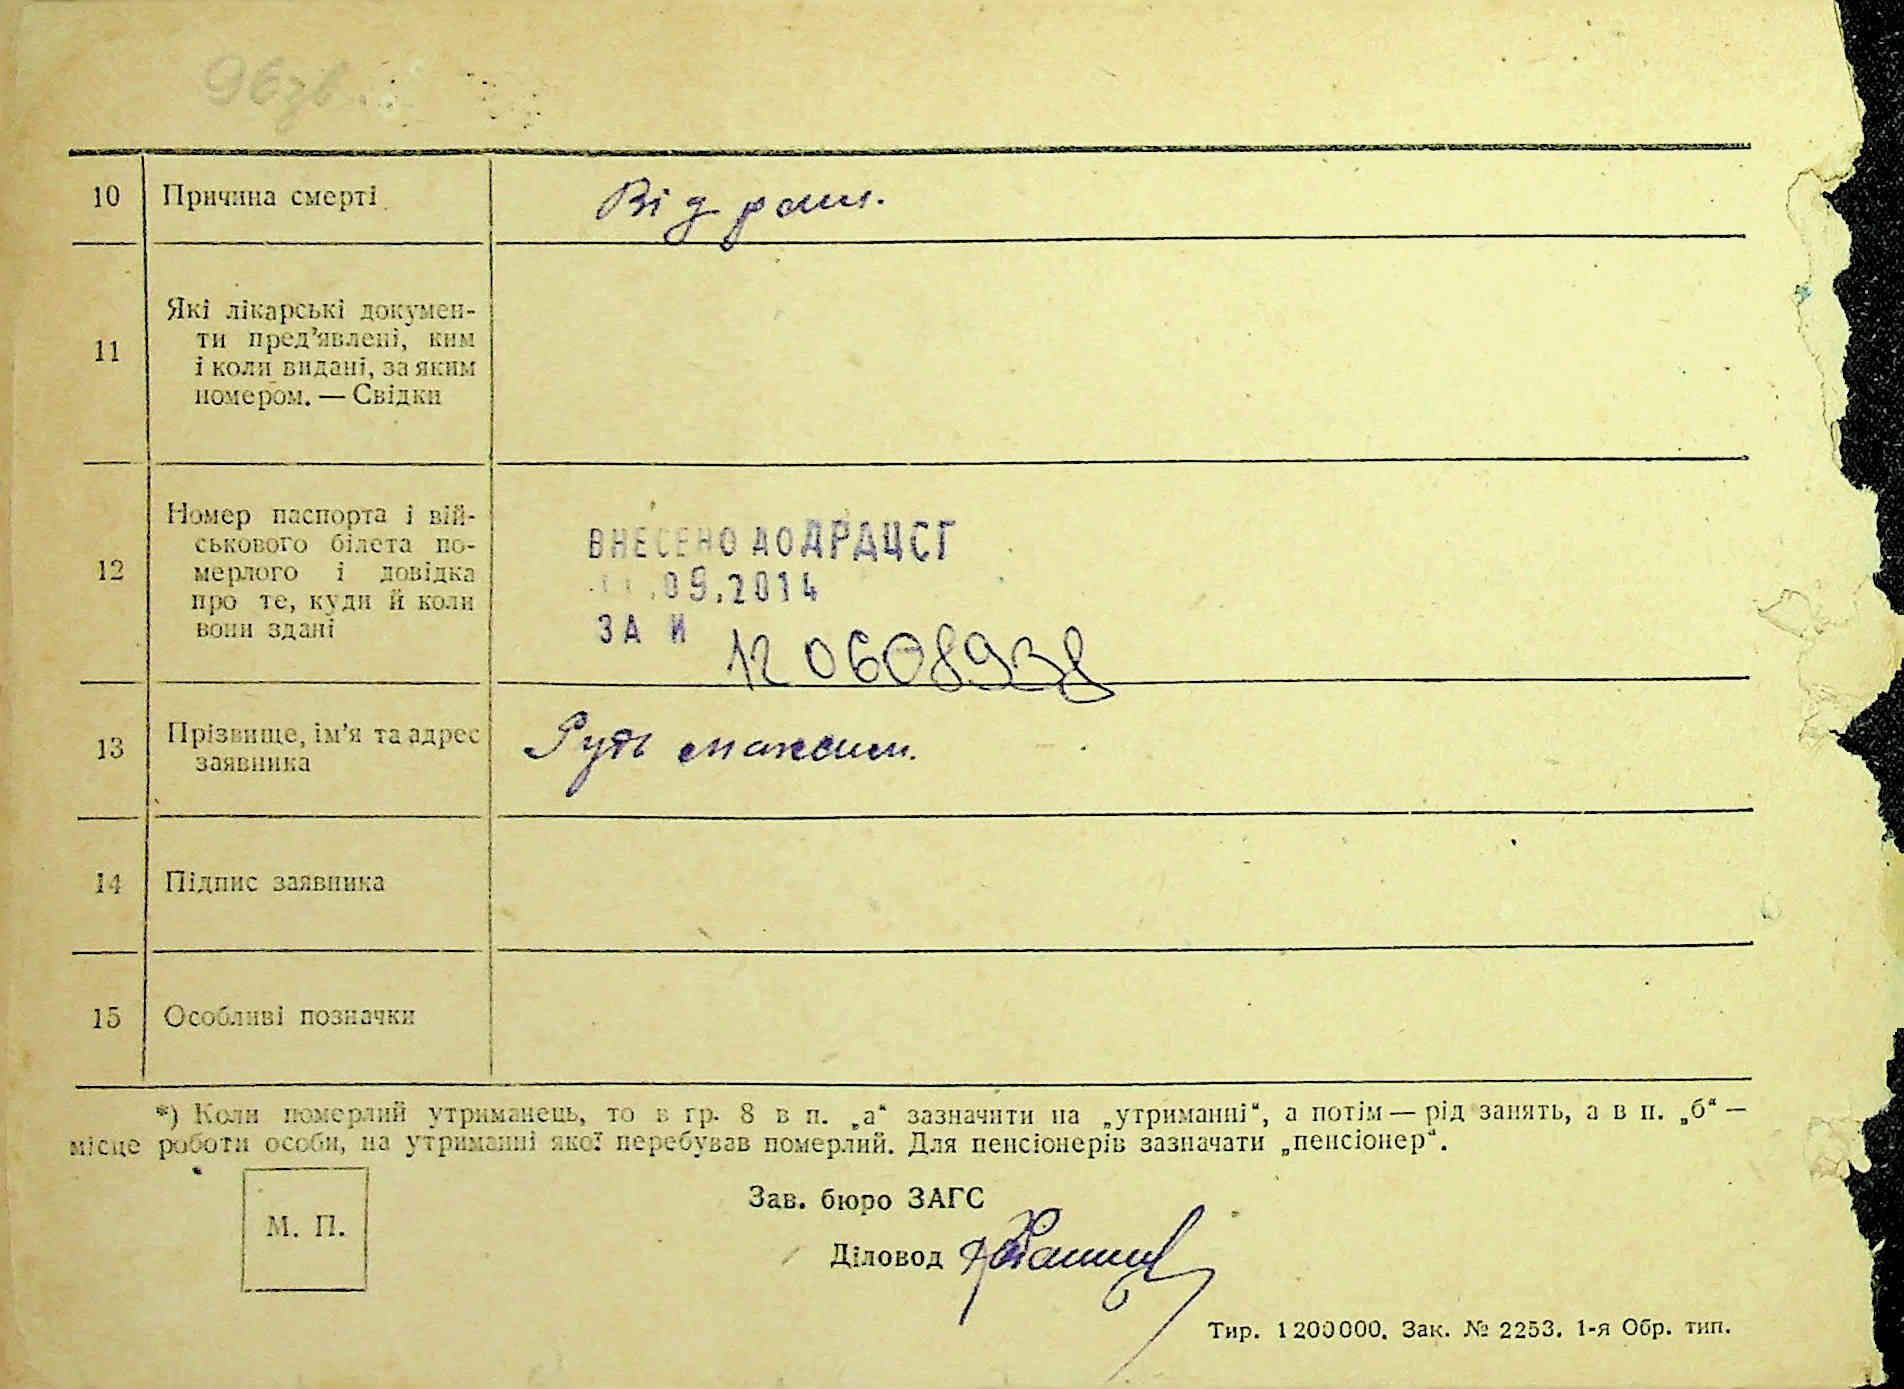 10 Причина смерті Від ран.
11 Які лікарські докумен-
ти пред'явлені, ким
і коли видані, за яким
номером. — Свідки
12 Номер паспорта і вій-
ськового білета по-
мерлого і довідка
про те, куди й коли
вони здані
ВНЕСЕНО ДО ДРАЦСГ
.09.2014
ЗА №
12 0608938
13 Прізвище, ім'я та адрес
заявника
Руть максим.
14 Підпис заявника
15 Особливі позначки
*) Коли померлий утриманець, то в гр. 8 в п. „а“ зазначити на „утриманні“, а потім — рід занять, а в п. „б“ —
місце роботи особи, на утриманні якої перебував померлий. Для пенсіонерів зазначати „пенсіонер“.
М. П.
Зав. бюро ЗАГС
Діловод
Тир. 1200000. Зак. № 2253. 1-я Обр. тип.